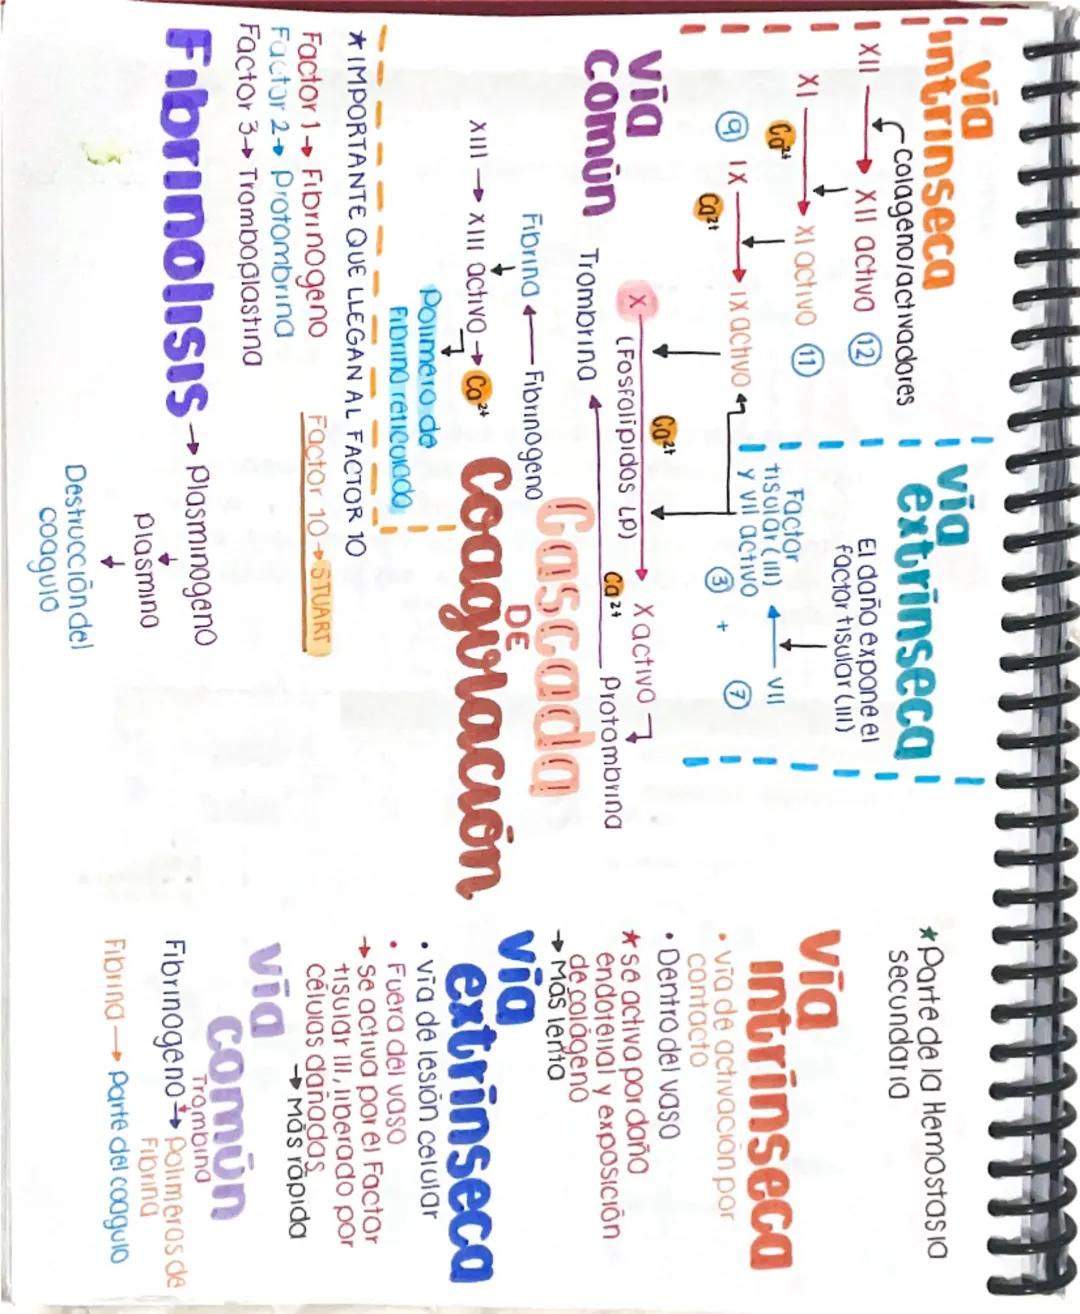 vía
intrínseca
colageno/activadores
XII → XII activo 12
XI → XI activo 11
Ca²⁺
9 IX → IX activo
Ca²⁺
vía
extrínseca
El daño expone el
factor tisular (III)
VII
Factor
tisular (III)
y VII activo
3 + 7
vía
común
X → X activo
Ca²⁺
(Fosfolípidos LP)
Ca²⁺
Trombrina ← Protombrina
Fibrina ← Fibrinogeno
XIII → XIII activo → Ca²⁺
Polímero de
Fibrina reticulada
Cascada
DE
Coagulación
★IMPORTANTE QUE LLEGAN AL FACTOR 10
Factor 1→ Fibrinogeno
Factor 2→ Protombrina
Factor 3→ Tromboplastina
Factor 10→STUART
Fibrinolisis → Plasminogeno
plasmino
Destrucción del
coagulo
★Parte de la Hemostasia
secundaria
vía
intrínseca
• vía de activación por
contacto
• Dentro del vaso
★ se activa por daño
endotelial y exposición
de colágeno
→ Mas lenta
vía
extrínseca
• vía de lesión celular
• Fuera del vaso
→ Se activa por el Factor
tisular III, liberado por
células dañadas
→ Más rápida
vía
común
Fibrinogeno → Polimeros de
Trombina
Fibrina
Fibrina → parte del coagulo